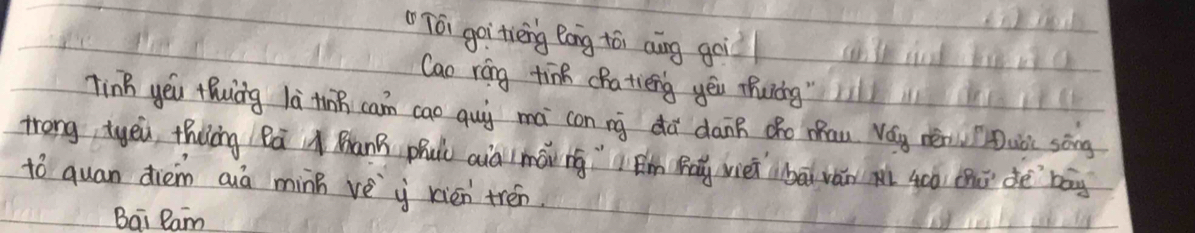 "Tôi gọi tiếng lòng tôi cũng gọi
Cao rộng tình cha tiếng yêu thương"
Tình yêu thương là tình cảm cao quý mà con ng đã dành cho nhau Vậy nên "Được sống
trong tyêu thương là 1 hạnh phúc của mỗi ng". Em hãy viết bài văn NL 400 chữ để bày
tỏ quan điểm của mình về ý kiến trên.
Bài làm